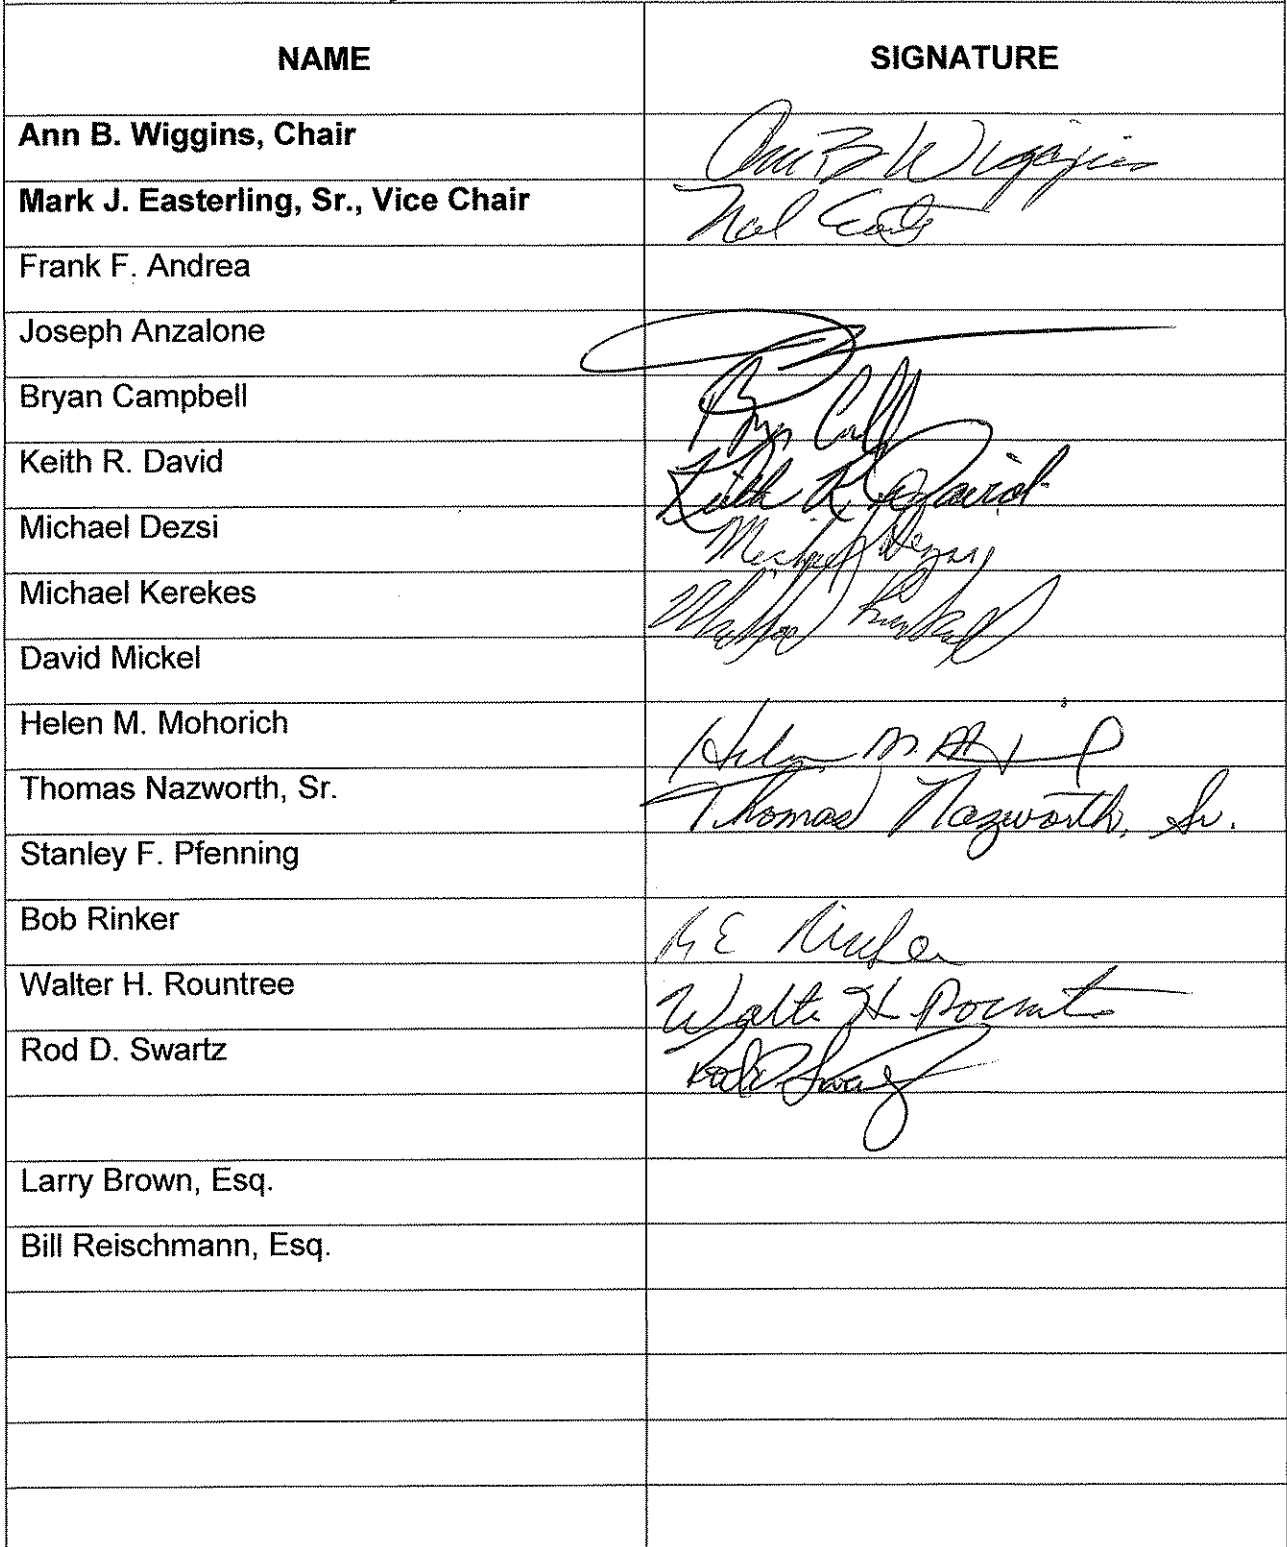 NAME SIGNATURE
Ann B. Wiggins, Chair Ann B Wiggins
Mark J. Easterling, Sr., Vice Chair
Frank F. Andrea
Joseph Anzalone
Bryan Campbell
Keith R. David Keith R. David
Michael Dezsi Michael Dezsi
Michael Kerekes
David Mickel
Helen M. Mohorich Helen M.
Thomas Nazworth, Sr. Thomas Nazworth, Sr.
Stanley F. Pfenning
Bob Rinker R E Rinker
Walter H. Rountree Walter H
Rod D. Swartz Rod D Swartz
Larry Brown, Esq.
Bill Reischmann, Esq.